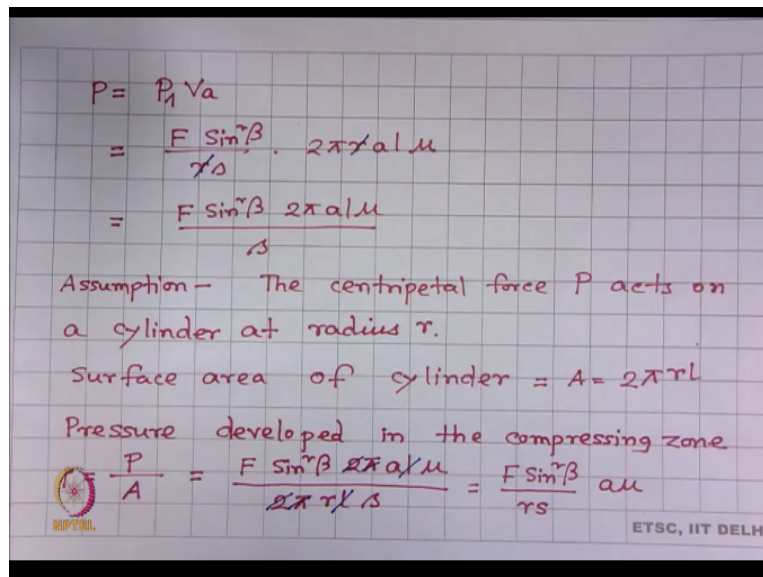 P = P₁ Va
= F Sin²β / rs . 2πr a l μ
= F Sin²β 2π a l μ / s
Assumption – The centripetal force P acts on
a cylinder at radius r.
Surface area of cylinder = A = 2πrL
Pressure developed in the compressing zone
= P / A = F Sin²β 2π a l μ / 2π r l s = F Sin²β / rs aμ
NPTEL
ETSC, IIT DELH